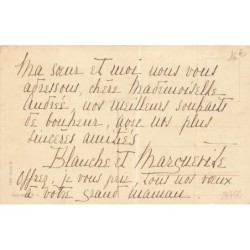 Ma sœur et moi nous vous
adressons, chère Mademoiselle
Andrée, nos meilleurs souhaits
de bonheur, avec nos plus
sincères amitiés
Blanche et Marguerite
Offrez, je vous prie, tous nos vœux
à votre grand maman.